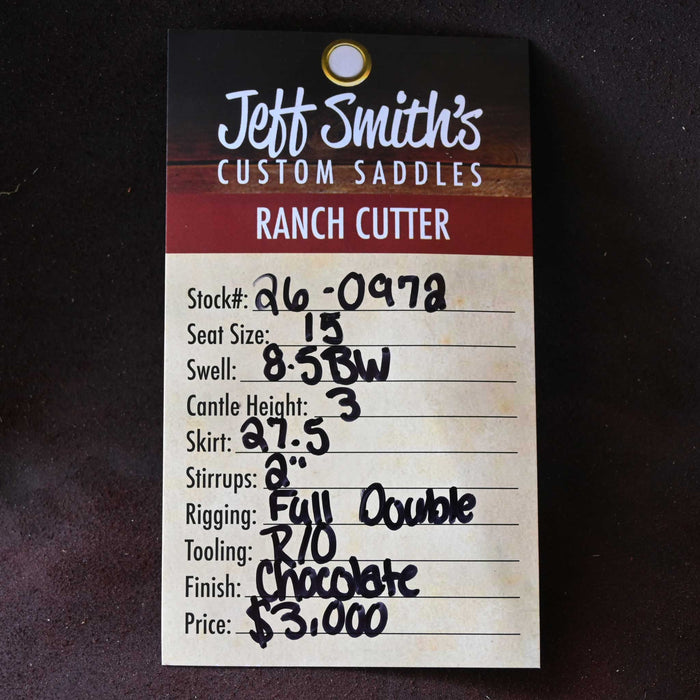 Jeff Smith's
CUSTOM SADDLES
RANCH CUTTER
Stock#: 26-0972
Seat Size: 15
Swell: 8.5BW
Cantle Height: 3
Skirt: 27.5
Stirrups: 2"
Rigging: Full Double
Tooling: R/O
Finish: Chocolate
Price: $3,000